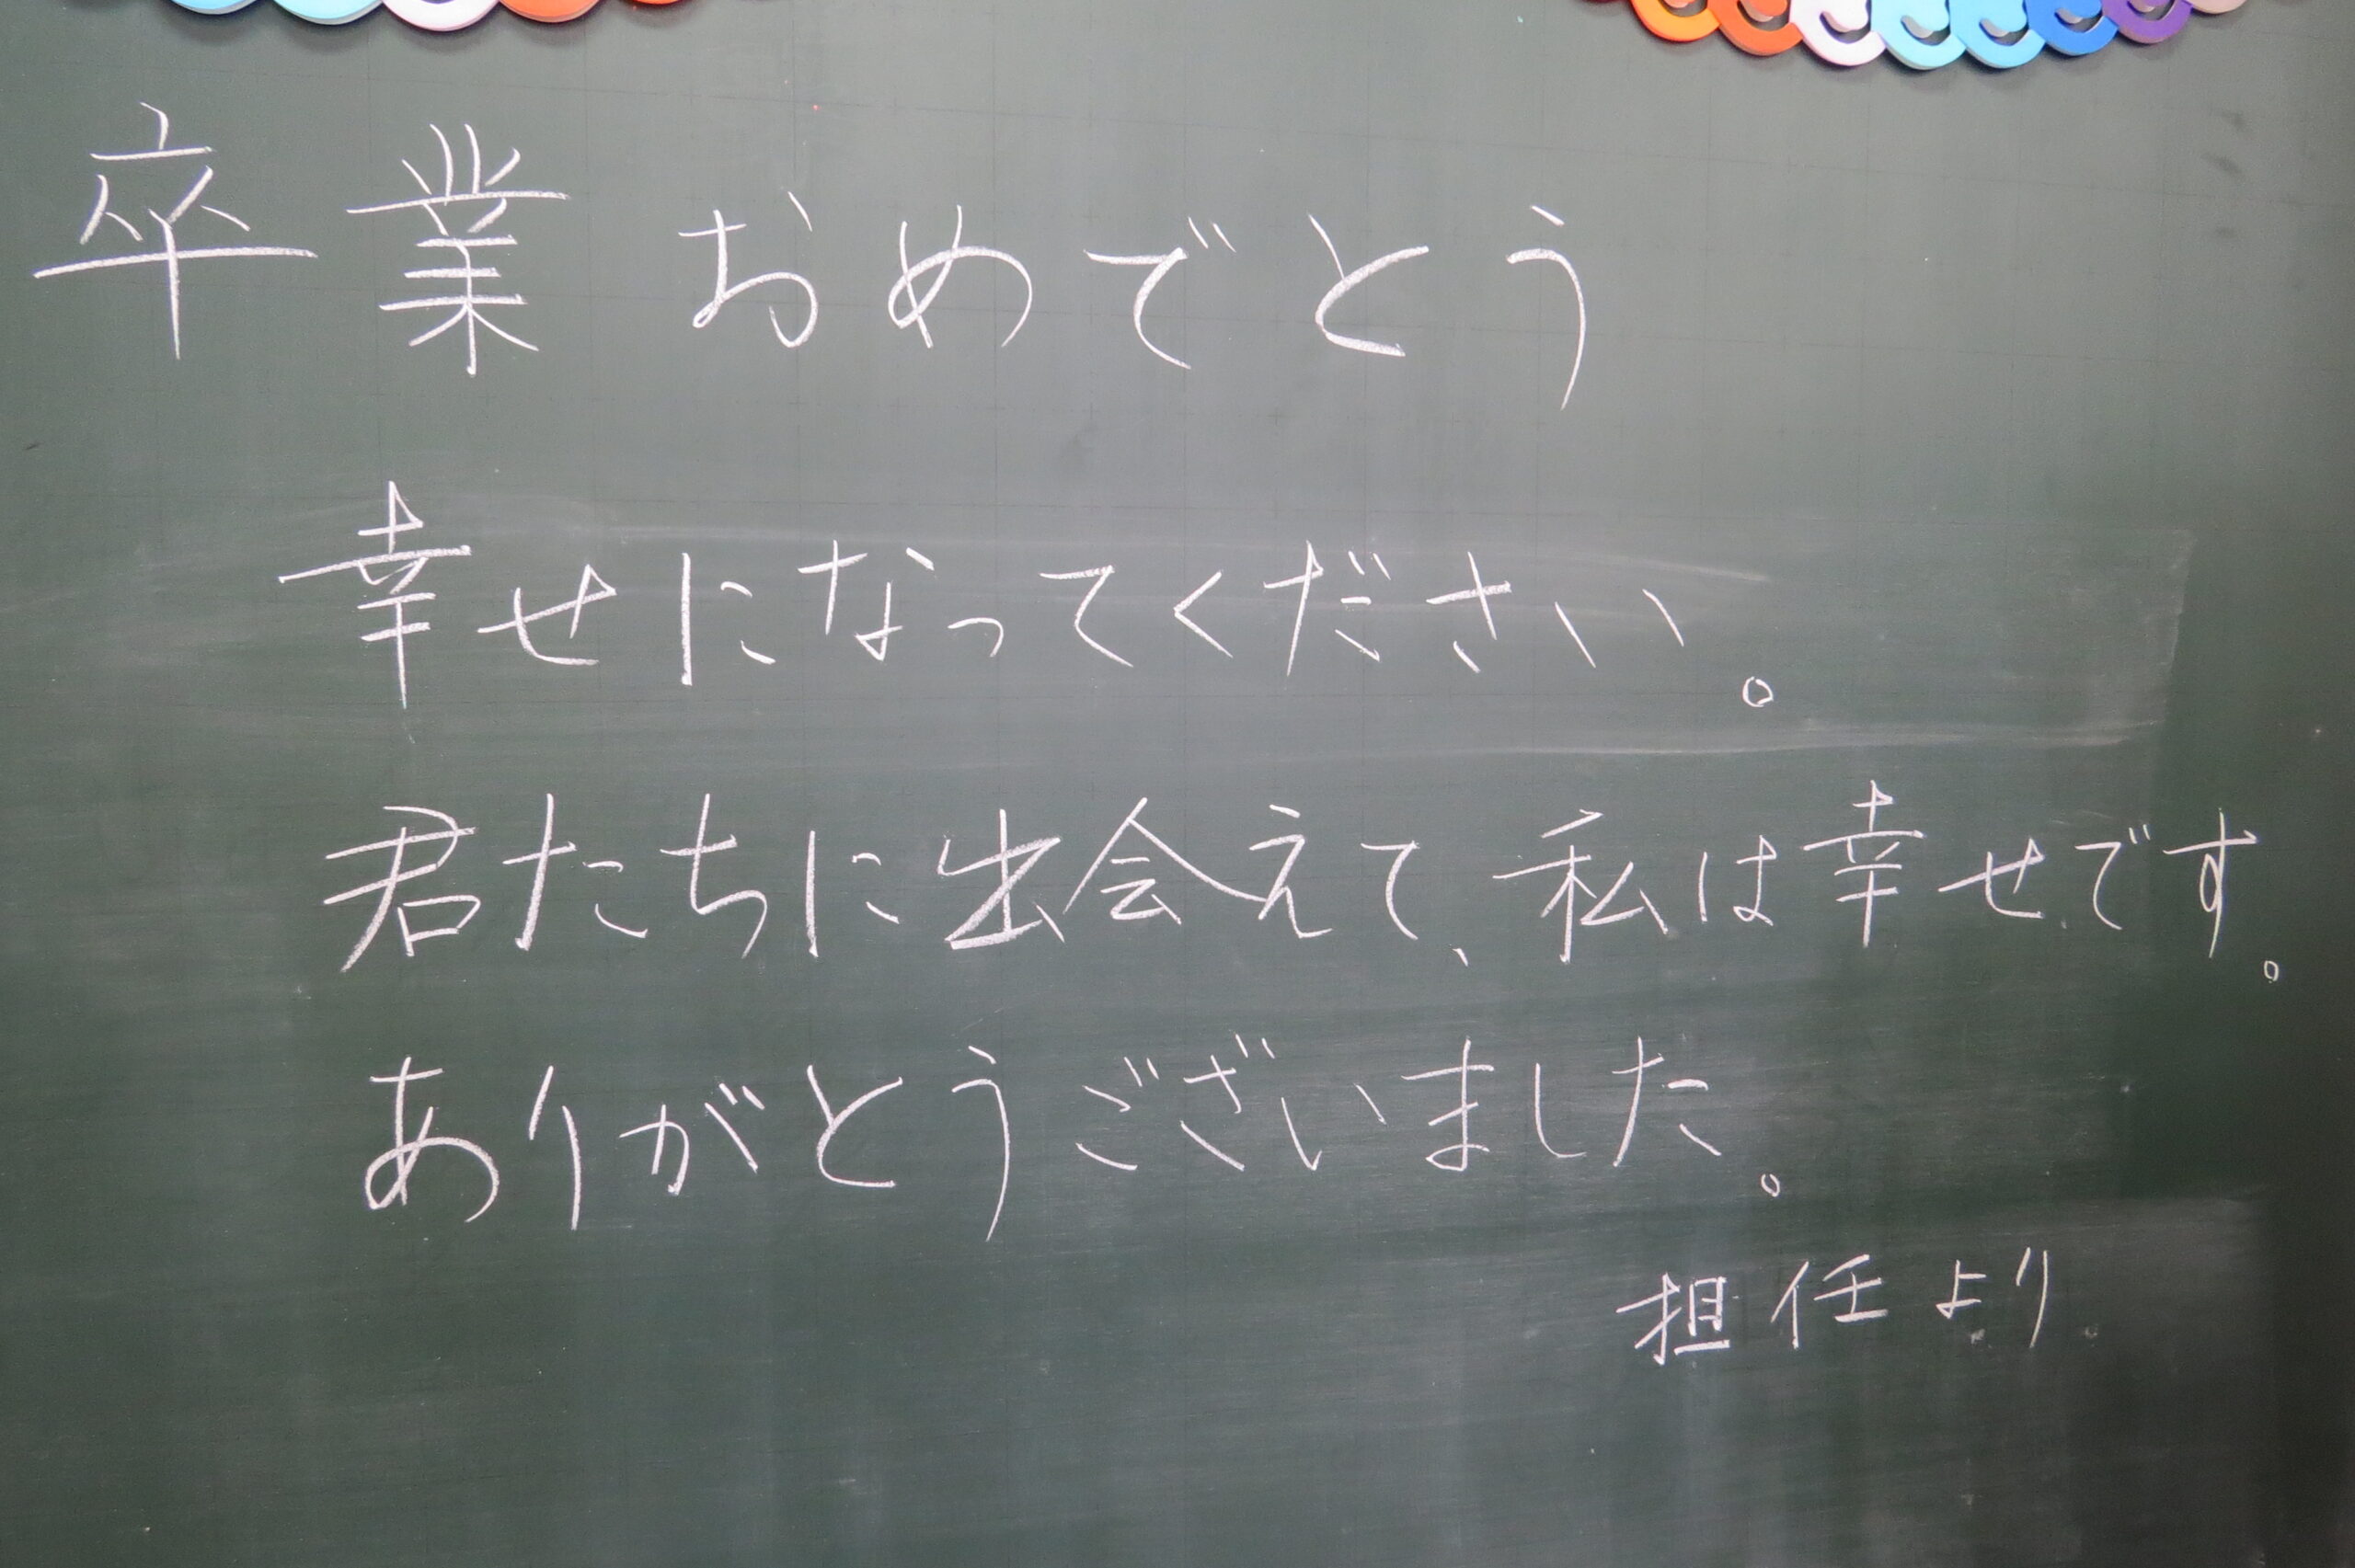 卒業おめでとう
幸せになってください。
君たちに出会えて、私は幸せです。
ありがとうございました。
担任より